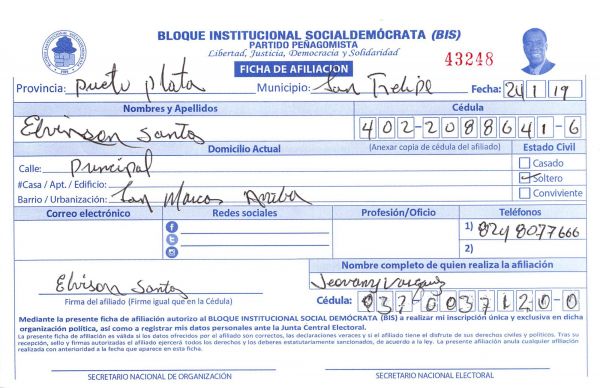 BLOQUE INSTITUCIONAL SOCIALDEMÓCRATA (BIS)
PARTIDO PEÑAGOMISTA
Libertad, Justicia, Democracia y Solidaridad
43248
FICHA DE AFILIACIÓN
Provincia: Puerto Plata Municipio: San Felipe Fecha: 24/1/19
Nombres y Apellidos Cédula
Elvinson Santos 402-2088641-6
Domicilio Actual (Anexar copia de cédula del afiliado) Estado Civil
Calle: Principal Casado
#Casa / Apt. / Edificio: Soltero
Barrio / Urbanización: San Marcos Arriba Conviviente
Correo electrónico Redes sociales Profesión/Oficio Teléfonos
1) 829 8077666
2)
Nombre completo de quien realiza la afiliación
Elvison Santos Jeovany Vasquez
Firma del afiliado (Firme igual que en la Cédula) Cédula: 037-0037120-0
Mediante la presente ficha de afiliación autorizo al BLOQUE INSTITUCIONAL SOCIAL DEMÓCRATA (BIS) a realizar mi inscripción única y exclusiva en dicha
organización política, así como a registrar mis datos personales ante la Junta Central Electoral.
La presente ficha de afiliación es válida si los datos ofrecidos por el afiliado son correctos, las declaraciones veraces y si el afiliado tiene el disfrute de sus derechos civiles y políticos. Tras su
recepción, sello y firmas autorizadas el afiliado ejercerá todos los derechos y los deberes estatutariamente sancionados, de acuerdo a la ley. La presente afiliación anula cualquier afiliación
realizada con anterioridad a la fecha que aparece en esta ficha.
SECRETARIO NACIONAL DE ORGANIZACIÓN SECRETARIO NACIONAL ELECTORAL